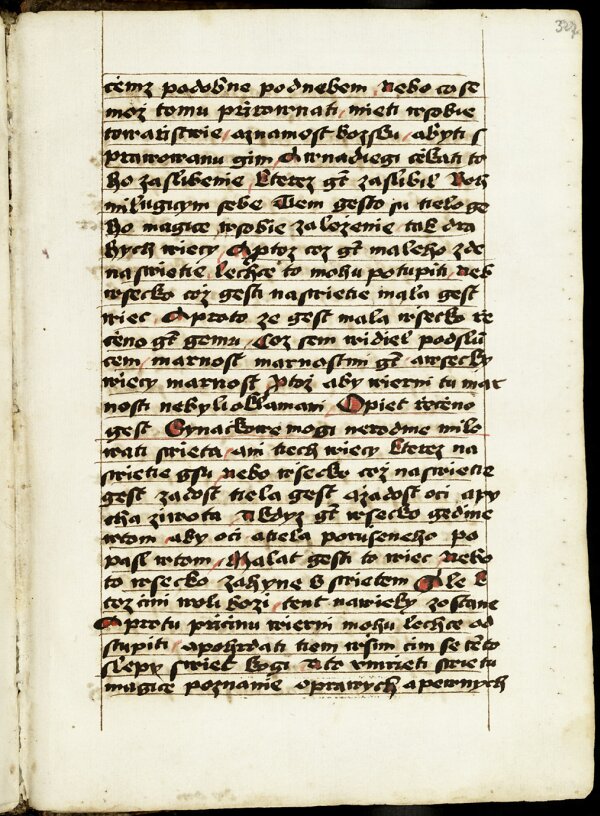 327
cemz podobne podnebem Nebo co se
moz tomu przirownati mieti wsobie
towarzistwie aznamost bozsku abyti s
prawowanu gim Awnadiegi czekati to
ho zaslibenie kterez gt zaslibil Boh
milugicym sebe Tiem gesto su tieloge
ho magice wsobie zalozenie tak dra
hych wiecy Aptoz coz gt maleho zde
naswietie lechce to mohu potupiti Neb
wsecko coz gesti naswietie mala gest
wiec Aproto ze gest mala wsecko rze
czeno gt gemu Coz sem widiel podslun
cem marnost marnastmi gt awsecky
wiecy marnost ptoz aby wierni tu mar
nosti nebyli oklamani Opiet rzeczeno
gest Synackowe mogi nerodme milo
wati swieta ani tiech wiecy kterez na
swietie gsu Nebo wsecko coz naswietie
gest zadost tiela gest azadost oci apy
cha ziwota Akdyz gt wsecko gedine
wtom aby oci atiela poruseneho po
pasl wtom Malat gesti to wiec Nebo
to wsecko zahyne s swietem Ale k
toz cini woli bozi tent nawieky zostane
Aprotu priczinu wierni mohu lechce od
stupiti apohrdati tiem wsim cim se tento
slepy swiet kogi Ato vmrieti swietu
magice poznanie oprawych apewnych